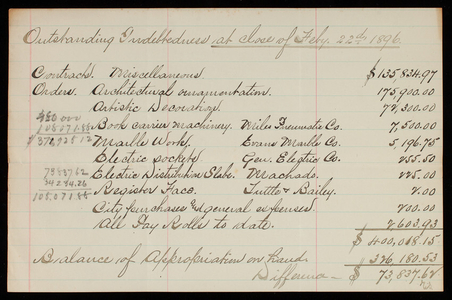 Outstanding Indebtedness at close of Feby. 22nd 1896.
Contracts. Miscellaneous. $135,834.97
Orders. Architectural ornamentation. 175,900.00
Artistic Decoration. 72,300.00
Book carrier machinery. Miles Pneumatic Co. 7,500.00
Marble Work. Evans Marble Co. 5,196.75
Electric sockets. Gen. Electric Co. 255.50
Electric Distribution Slabs. Machado. 225.00
Register Faces. Tuttle & Bailey. 2.00
City purchases & general expenses. 200.00
All Pay Rolls to date. 2,603.93
$400,068.15
Balance of Appropriation on hand 326,180.53
Difference — $73,837.62
108,071.88